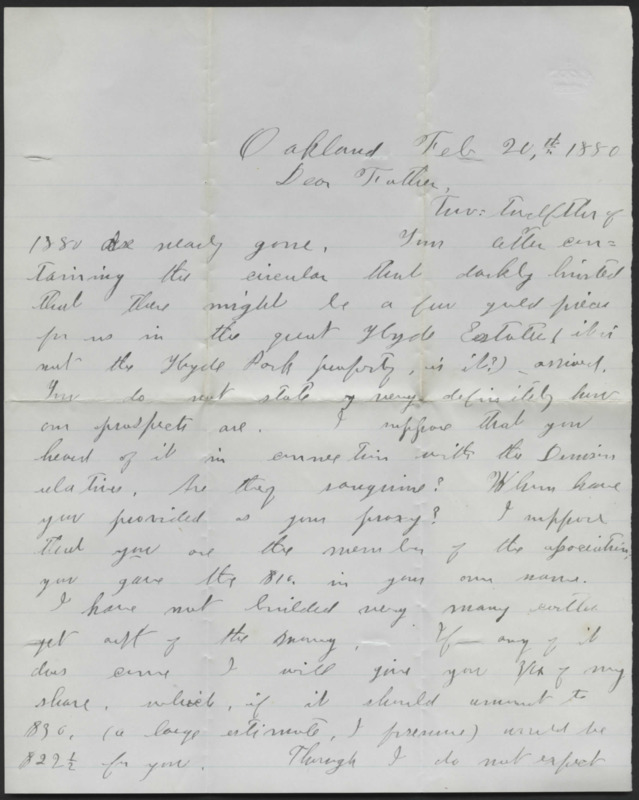 Oakland Feb 20,th 1880
Dear Father,
Two=twelfths of
1880 are nearly gone. Your letter con=
taining the circular that darkly hinted
that there might be a few gold pieces
for us in the great Hyde Estate (it is
not the Hyde Park property, is it?) arrived.
You do not state very definitely how
our prospects are. I suppose that you
heard of it in connection with the Denison
relatives. Are they sanguine? Whom have
you provided as your proxy? I suppose
that you are the member of the association,
you gave the $10. in your own name.
I have not builded very many castles
yet out of the money. If any of it
does come I will give you 3/4 of my
share, which, if it should amount to
$30. (a large estimate, I presume) would be
$22 1/2 for you. Though I do not expect